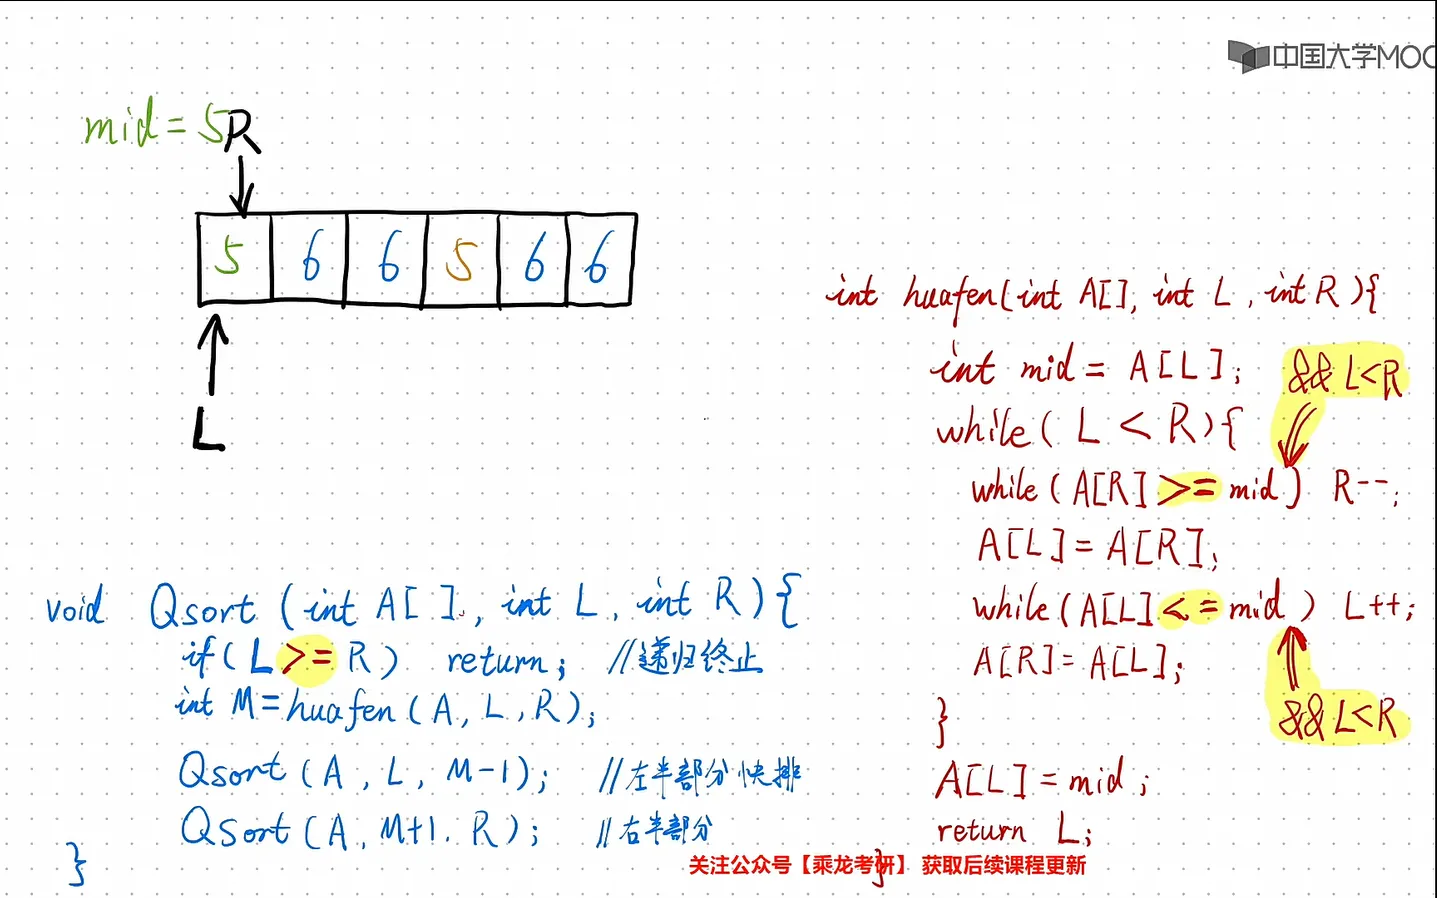 中国大学MOC
mid=5
R
5 6 6 5 6 6
L
int huafen(int A[], int L, int R){
int mid = A[L];
&& L<R
while( L < R){
while(A[R] >= mid) R--;
A[L]=A[R];
while(A[L]<=mid) L++;
A[R]=A[L];
&& L<R
}
A[L]=mid;
return L;
}
void Qsort (int A[], int L, int R){
if(L >= R) return; //递归终止
int M=huafen(A, L, R);
Qsort(A, L, M-1); //左半部分快排
Qsort(A, M+1, R); //右半部分
}
关注公众号【乘龙考研】 获取后续课程更新